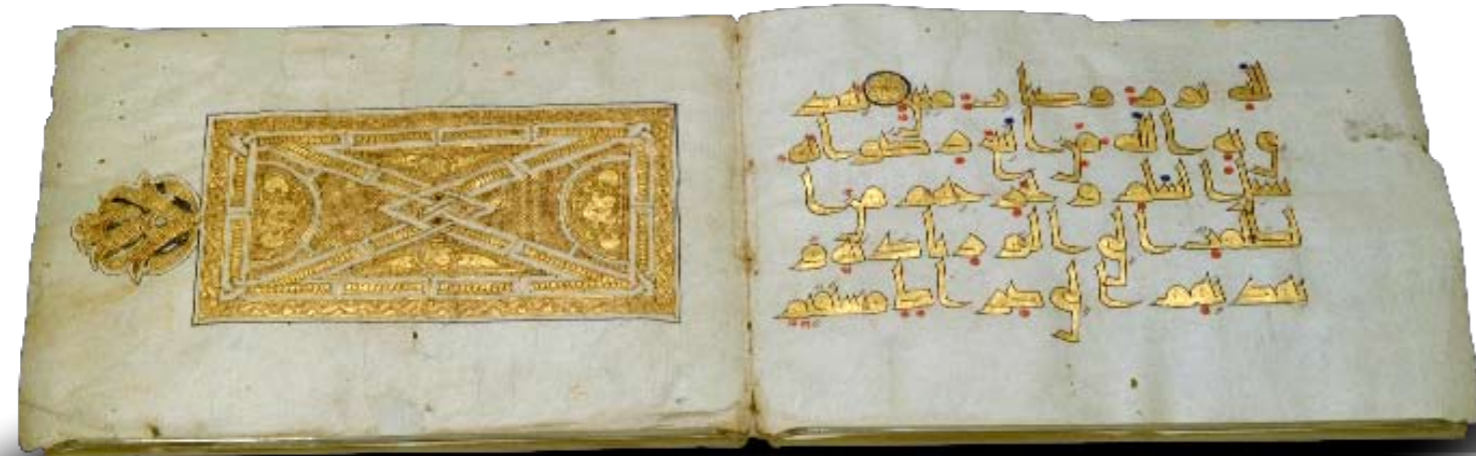 الله نور وكتاب مبين يهد
ي به الله من اتبع رضوانه
سبل السلم ويخرجهم من ا
لظلمت الى النور باذنه و
يهديهم الى صراط مستقيم